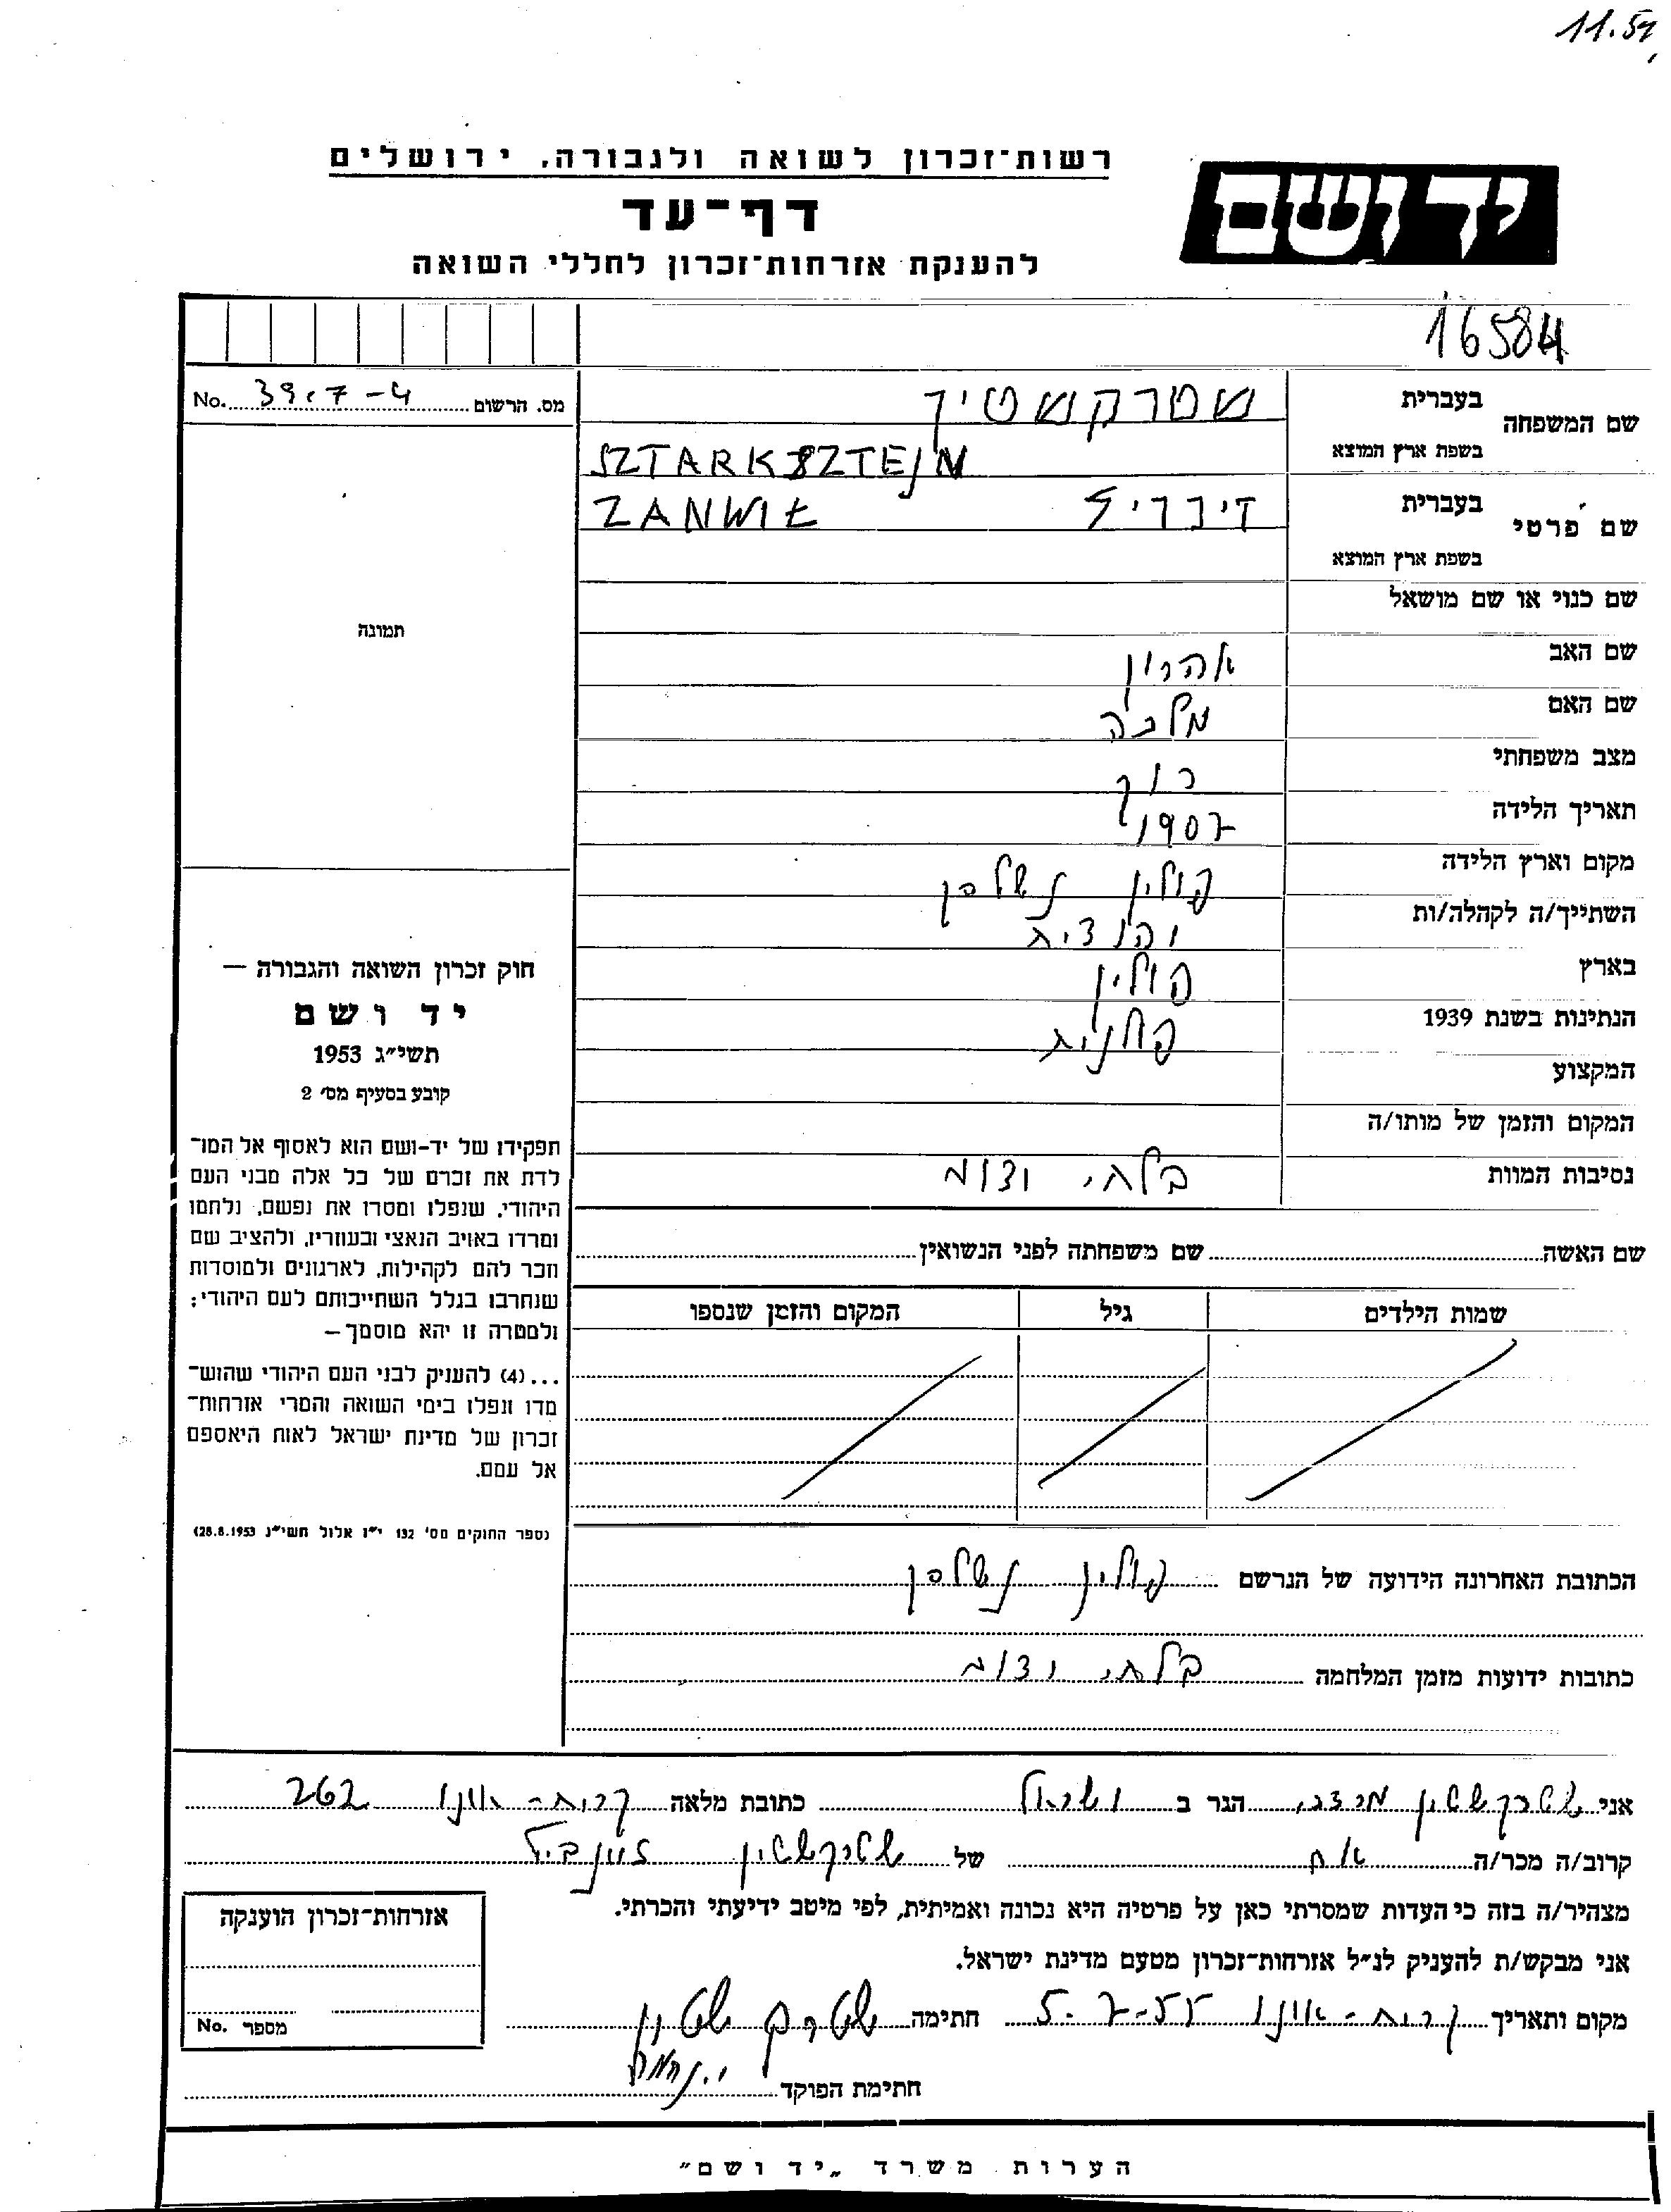 11.57
רשות־זכרון לשואה ולגבורה, ירושלים
יד ושם
דף־עד
להענקת אזרחות־זכרון לחללי השואה
16584
מס. הרשום 39.7-4 No.
שם המשפחה
בעברית שטרקשטיין
בשפת ארץ המוצא SZTARKSZTEJN
שם פרטי
בעברית
בשפת ארץ המוצא ZANWIŁ
שם כנוי או שם מושאל
תמונה
שם האב אהרון
שם האם מלכה
מצב משפחתי רווק
תאריך הלידה 1907
מקום וארץ הלידה פולין
השתייך/ה לקהלה/ות יהודית
בארץ פולין
הנתינות בשנת 1939 פולנית
המקצוע
המקום והזמן של מותו/ה
נסיבות המוות בלתי ידוע
חוק זכרון השואה והגבורה —
יד ושם
תשי״ג 1953
קובע בסעיף מס׳ 2
תפקידו של יד-ושם הוא לאסוף אל המו־
לדת את זכרם של כל אלה מבני העם
היהודי, שנפלו ומסרו את נפשם, נלחמו
ומרדו באויב הנאצי ובעוזריו, ולהציב שם
וזכר להם לקהילות, לארגונים ולמוסדות
שנחרבו בגלל השתייכותם לעם היהודי;
ולמטרה זו יהא מוסמך—
...(4) להעניק לבני העם היהודי שהוש־
מדו ונפלו בימי השואה והמרי אזרחות־
זכרון של מדינת ישראל לאות היאספם
אל עמם.
(ספר החוקים מס׳ 132 י״ז אלול תשי״ג 28.8.1953)
שם האשה שם משפחתה לפני הנשואין
שמות הילדים גיל המקום והזמן שנספו
הכתובת האחרונה הידועה של הנרשם פולין
כתובות ידועות מזמן המלחמה בלתי ידוע
אני שטרקשטיין הגר ב ישראל כתובת מלאה קרית-אונו 262
קרוב/ה מכר/ה אח של שטרקשטיין זנביל
מצהיר/ה בזה כי העדות שמסרתי כאן על פרטיה היא נכונה ואמיתית, לפי מיטב ידיעתי והכרתי.
אני מבקש/ת להעניק לנ״ל אזרחות־זכרון מטעם מדינת ישראל.
מקום ותאריך קרית-אונו 5-7-55 חתימה שטרקשטיין
חתימת הפוקד
אזרחות־זכרון הוענקה
מספר No.
הערות משרד „יד ושם״